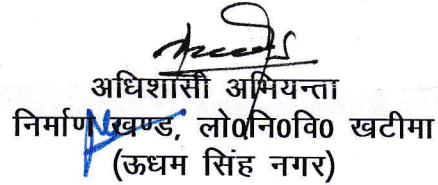 अधिशासी अभियन्ता
निर्माण खण्ड, लो0नि0वि0 खटीमा
(ऊधम सिंह नगर)